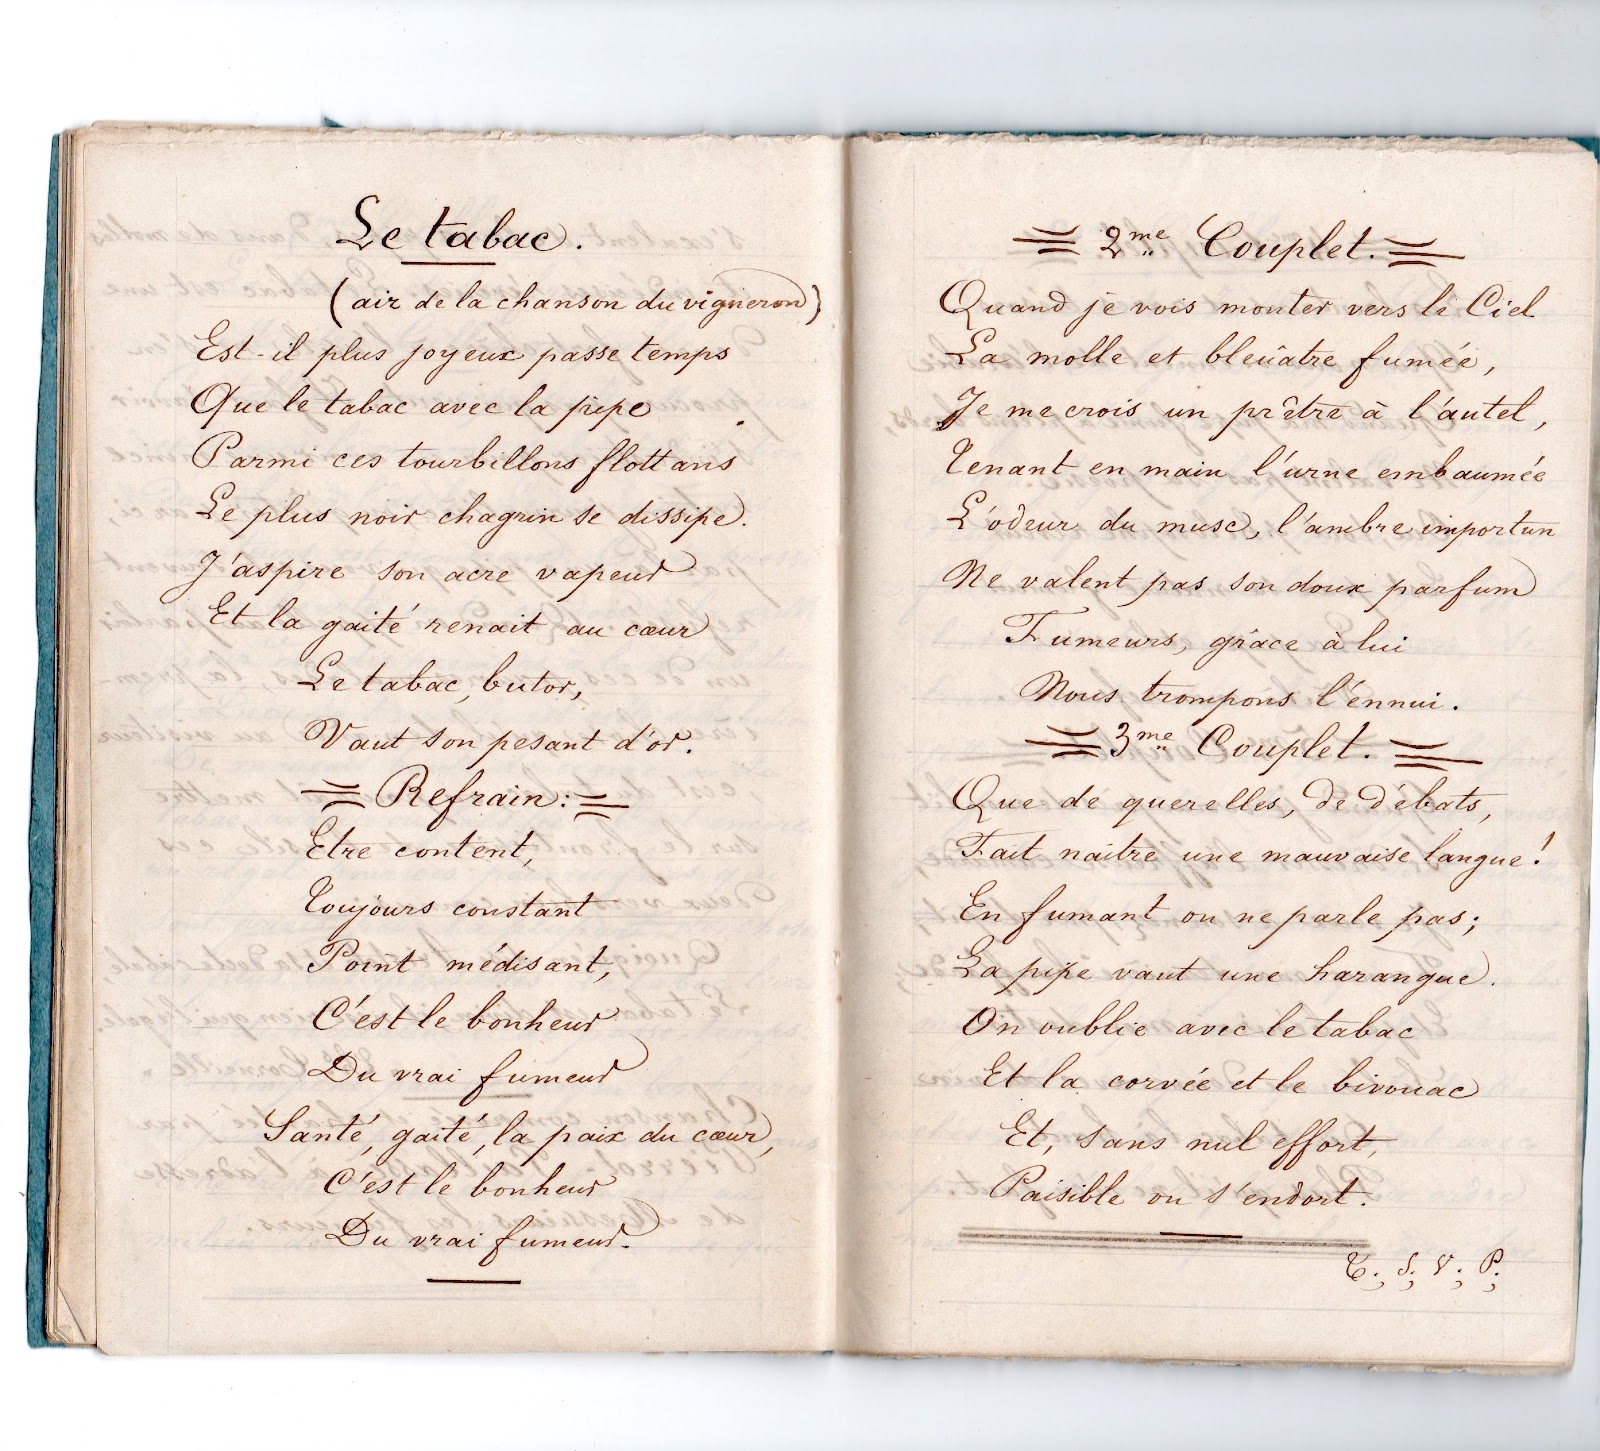 Le tabac.
(air de la chanson du vigneron)
Est-il plus joyeux passe temps
Que le tabac avec la pipe
Parmi ces tourbillons flottans
Le plus noir chagrin se dissipe.
J'aspire son acre vapeur
Et la gaité renait au cœur
Le tabac, butor,
Vaut son pesant d'or.
Refrain:
Etre content,
Toujours constant
Point médisant,
C'est le bonheur
Du vrai fumeur
Santé, gaité, la paix du cœur,
C'est le bonheur
Du vrai fumeur.
2me Couplet.
Quand je vois monter vers le Ciel
La molle et bleuâtre fumée,
Je me crois un prêtre à l'autel,
Tenant en main l'urne embaumée
L'odeur du musc, l'ambre importun
Ne valent pas son doux parfum
Fumeurs, grâce à lui
Nous trompons l'ennui.
3me Couplet.
Que de querelles, de débats,
Fait naître une mauvaise langue!
En fumant on ne parle pas;
La pipe vaut une harangue.
On oublie avec le tabac
Et la corvée et le bivouac
Et, sans nul effort,
Paisible on s'endort.
T. S. V. P.